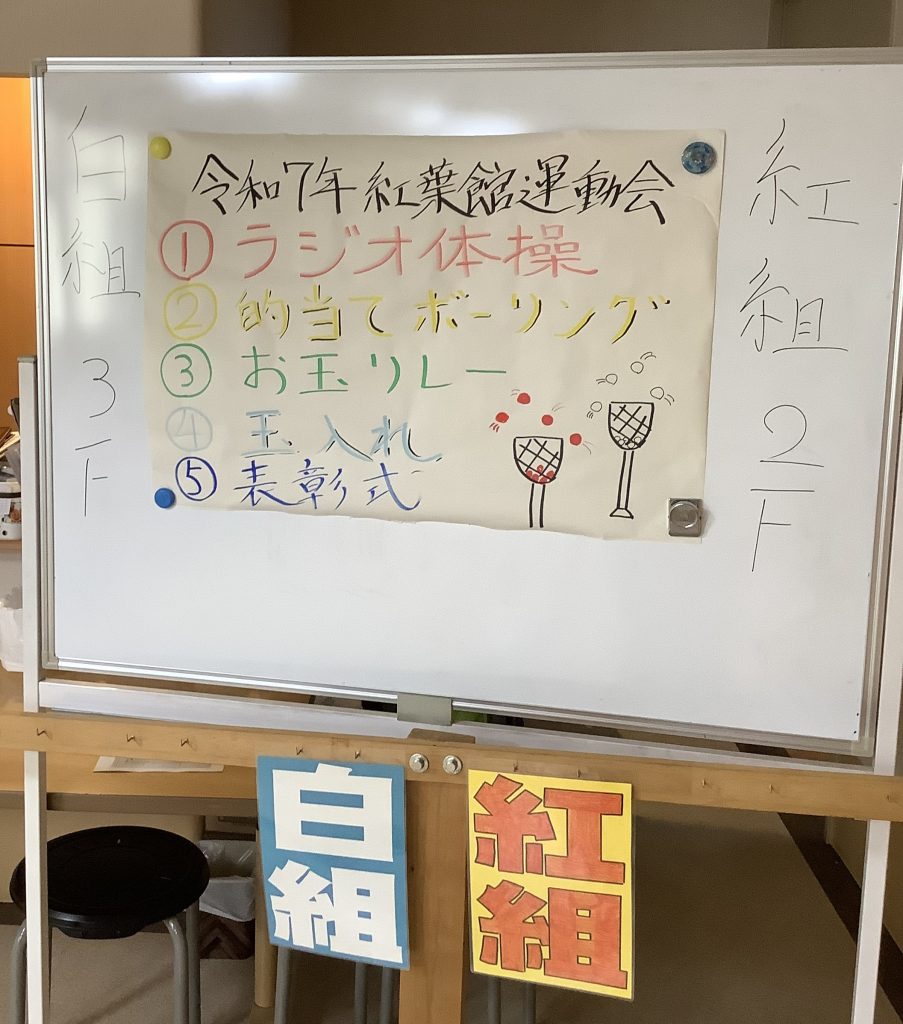 令和7年 紅葉館運動会
① ラジオ体操
② 的当てボーリング
③ お玉リレー
④ 玉入れ
⑤ 表彰式
白組 3F
紅組 2F
白組
紅組